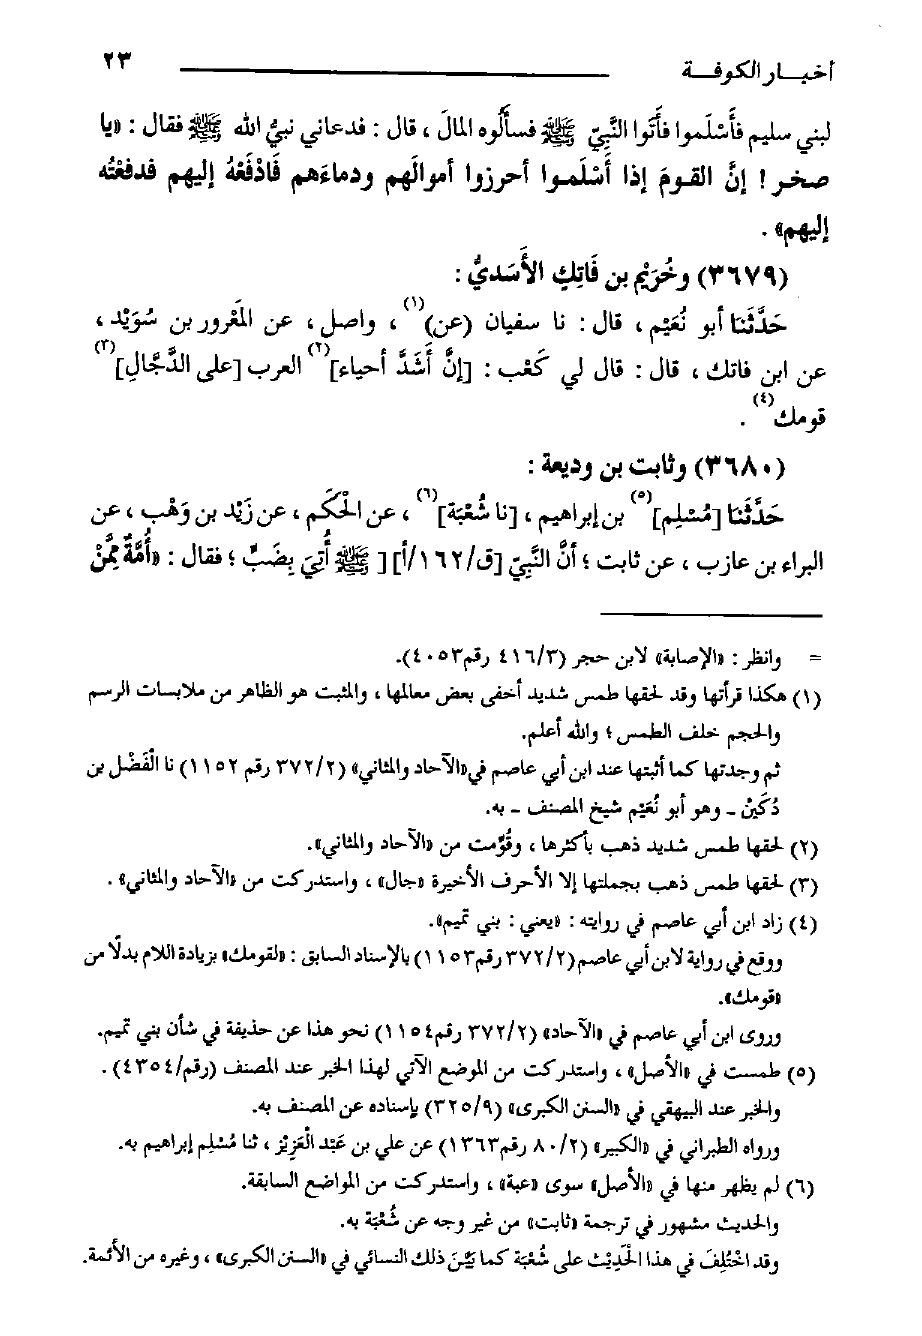 أخبــار الكوفــة ٢٣
لبني سليم فأَسْلَموا فأَتَوا النَّبِيّ ﷺ فسأَلُوه المالَ ، قال : فدعاني نبيُّ الله ﷺ فقال : «يا
صخر ! إنَّ القومَ إذا أَسْلَمـوا أحرزوا أموالَهم ودماءَهم فَادْفَعْهُ إليهم فدفعْتُه
إليهم» .
(٣٦٧٩) وخُرَيْم بن فَاتِكِ الأَسَديُّ :
حَدَّثَنَا أبو نُعَيْم ، قال : نا سفيان (عن)(١) ، واصل ، عن المَعْرور بن سُوَيْد ،
عن ابن فاتك ، قال : قال لي كَعْب : [إنَّ أَشَدَّ أحياء](٢) العرب [على الدَّجَّالِ](٣)
قومك(٤) .
(٣٦٨٠) وثابت بن وديعة :
حَدَّثَنَا [مُسْلِم](٥) بن إبراهيم ، [نا شُعْبَة](٦) ، عن الحْكَم ، عن زَيْد بن وَهْب ، عن
البراء بن عازب ، عن ثابت ؛ أنَّ النَّبِيّ [ق/١٦٢/أ] [ ﷺ أُتِيَ بِضَبٍّ ؛ فقال : «أُمَّةٌ مِمَّنْ
= وانظر : «الإصابة» لابن حجر (٤١٦/٣ رقم٤٠٥٣).
(١) هكذا قرأتها وقد لحقها طمس شديد أخفى بعض معالمها ، والمثبت هو الظاهر من ملابسات الرسم
والحجم خلف الطمس ؛ والله أعلم.
ثم وجدتها كما أثبتها عند ابن أبي عاصم في«الآحاد والمثاني» (٣٧٢/٢ رقم ١١٥٢) نا الْفَضْل بن
دُكَيْنٌ ـ وهو أبو نُعَيْم شيخ المصنف ـ به.
(٢) لحقها طمس شديد ذهب بأكثرها ، وقُوِّمت من «الآحاد والمثاني».
(٣) لحقها طمس ذهب بجملتها إلا الأحرف الأخيرة «جال» ، واستدركت من «الآحاد والمثاني» .
(٤) زاد ابن أبي عاصم في روايته : «يعني : بني تميم».
ووقع في رواية لابن أبي عاصم(٣٧٢/٢ رقم١١٥٣) بالإسناد السابق : «لقومك» بزيادة اللام بدلًا من
«قومك».
وروى ابن أبي عاصم في «الآحاد» (٣٧٢/٢ رقم١١٥٤) نحو هذا عن حذيفة في شأن بني تميم.
(٥) طمست في «الأصل» ، واستدركت من الموضع الآتي لهذا الخبر عند المصنف (رقم/٤٣٥٤) .
والخبر عند البيهقي في «السنن الكبرى» (٣٢٥/٩) بإسناده عن المصنف به.
ورواه الطبراني في «الكبير» (٨٠/٢ رقم١٣٦٣) عن علي بن عَبْد الْعَزِيْز ، ثنا مُسْلِم إبراهيم به.
(٦) لم يظهر منها في «الأصل» سوى «عبة» ، واستدركت من المواضع السابقة.
والحديث مشهور في ترجمة «ثابت» من غير وجه عن شُعْبَة به.
وقد اخْتُلِفَ في هذا الْحَدِيْث على شُعْبَة كما بَيَّنَ ذلك النسائي في «السنن الكبرى» ، وغيره من الأئمة.